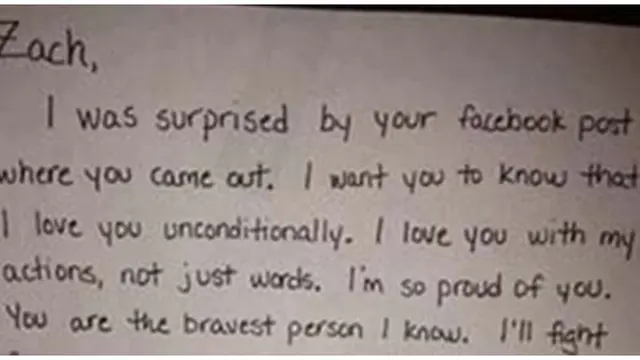 Zach,
I was surprised by your facebook post
where you came out. I want you to know that
I love you unconditionally. I love you with my
actions, not just words. I'm so proud of you.
You are the bravest person I know. I'll fight